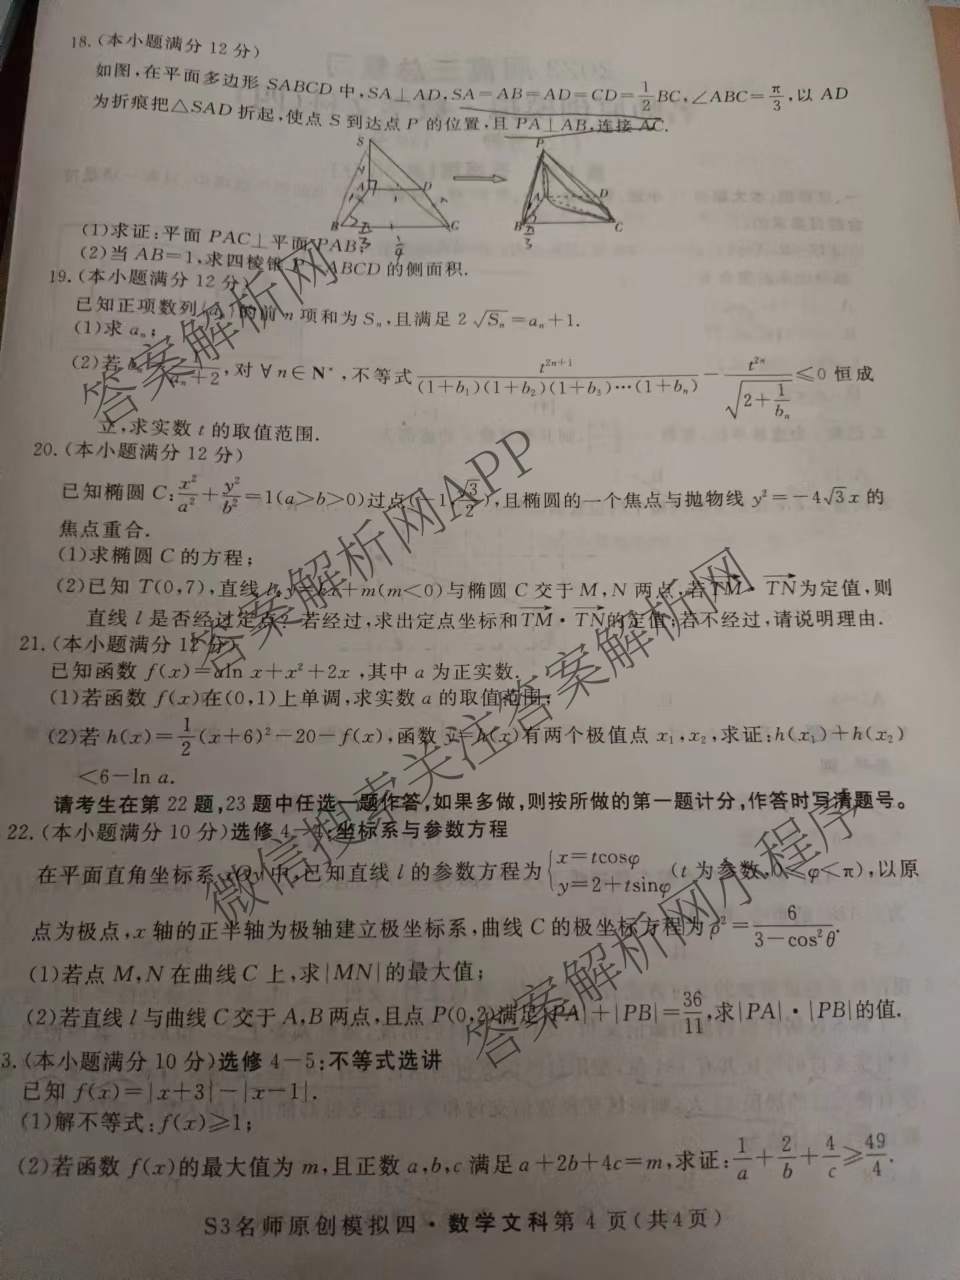 18.(本小题满分12分)
如图,在平面多边形SABCD中,SA⊥AD,SA=AB=AD=CD=1/2BC,∠ABC=π/3,以AD
为折痕把△SAD折起,使点S到达点P的位置,且PA⊥AB,连接AC.
S
A
D
B
C
π/3
P
A
D
B
C
π/3
(1)求证:平面PAC⊥平面PAB;
(2)当AB=1,求四棱锥P-ABCD的侧面积.
19.(本小题满分12分)
已知正项数列 的前n项和为Sₙ,且满足2√Sₙ=aₙ+1.
(1)求aₙ;
(2)若 aₙ+2,对∀n∈N*,不等式t²ⁿ⁺¹/((1+b₁)(1+b₂)(1+b₃)…(1+bₙ))-t²ⁿ/√(2+1/bₙ)≤0恒成
立,求实数t的取值范围.
20.(本小题满分12分)
已知椭圆C:x²/a²+y²/b²=1(a>b>0)过点(-1, 3/2),且椭圆的一个焦点与抛物线y²=-4√3x的
焦点重合.
(1)求椭圆C的方程;
(2)已知T(0,7),直线l:y=kx+m(m<0)与椭圆C交于M,N两点,若TM·TN为定值,则
直线l是否经过定点?若经过,求出定点坐标和TM·TN的定值;若不经过,请说明理由.
21.(本小题满分12分)
已知函数f(x)=aln x+x²+2x,其中a为正实数.
(1)若函数f(x)在(0,1)上单调,求实数a的取值范围;
(2)若h(x)=1/2(x+6)²-20-f(x),函数y=h(x)有两个极值点x₁,x₂,求证:h(x₁)+h(x₂)
<6-ln a.
请考生在第22题,23题中任选一题作答,如果多做,则按所做的第一题计分,作答时写清题号。
22.(本小题满分10分)选修4-4:坐标系与参数方程
在平面直角坐标系xOy中,已知直线l的参数方程为{x=tcosφ y=2+tsinφ(t为参数,0≤φ<π),以原
点为极点,x轴的正半轴为极轴建立极坐标系,曲线C的极坐标方程为ρ²=6/(3-cos²θ).
(1)若点M,N在曲线C上,求|MN|的最大值;
(2)若直线l与曲线C交于A,B两点,且点P(0,2)满足|PA|+|PB|=36/11,求|PA|·|PB|的值.
3.(本小题满分10分)选修4-5:不等式选讲
已知f(x)=|x+3|-|x-1|.
(1)解不等式:f(x)≥1;
(2)若函数f(x)的最大值为m,且正数a,b,c满足a+2b+4c=m,求证:1/a+2/b+4/c≥49/4.
S3名师原创模拟四·数学文科第4页(共4页)
答案解析网
答案解析网APP
微信搜索关注答案解析网
答案解析网小程序